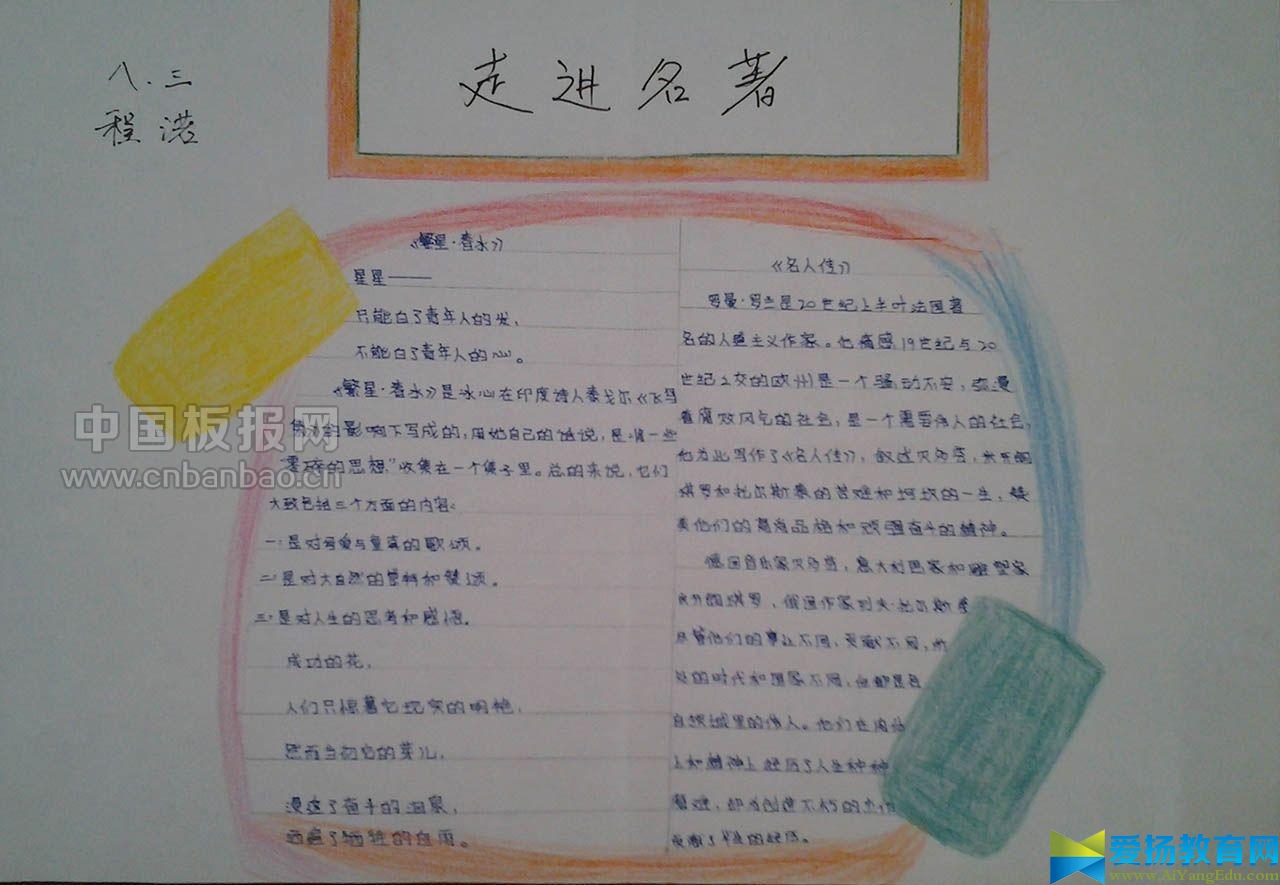 八.三
程浩
走进名著
《繁星·春水》
星星——
只能白了青年人的发，
不能白了青年人的心。
《繁星·春水》是冰心在印度诗人泰戈尔《飞鸟
集》的影响下写成的，用她自己的话说，是将一些
“零碎的思想”收集在一个集子里。总的来说，它们
大致包括三个方面的内容：
一：是对母爱与童真的歌颂。
二：是对大自然的崇拜和赞颂。
三：是对人生的思考和感悟。
成功的花，
人们只惊慕它现实的明艳，
然而当初它的芽儿，
浸透了奋斗的泪泉，
洒遍了牺牲的血雨。
《名人传》
罗曼·罗兰是20世纪上半叶法国著
名的人道主义作家。他痛感19世纪与20
世纪之交的欧洲是一个骚动不安，弥漫
着腐败风气的社会，是一个需要伟人的社会，
他为此写作了《名人传》，叙述贝多芬，米开朗
琪罗和托尔斯泰的苦难和坎坷的一生，赞
美他们的高尚品格和顽强奋斗的精神。
德国音乐家贝多芬，意大利画家和雕塑家
米开朗琪罗，俄国作家列夫·托尔斯
尽管他们的事业不同，贡献不同，所
处的时代和国家不同，但都是各
自领域里的伟人。他们在肉体
上和精神上经历了人生种种
磨难，却为创造不朽的杰作
贡献了毕生的经历。
中国板报网
www.cnbanbao.cn
爱扬教育网
www.AiYangEdu.com